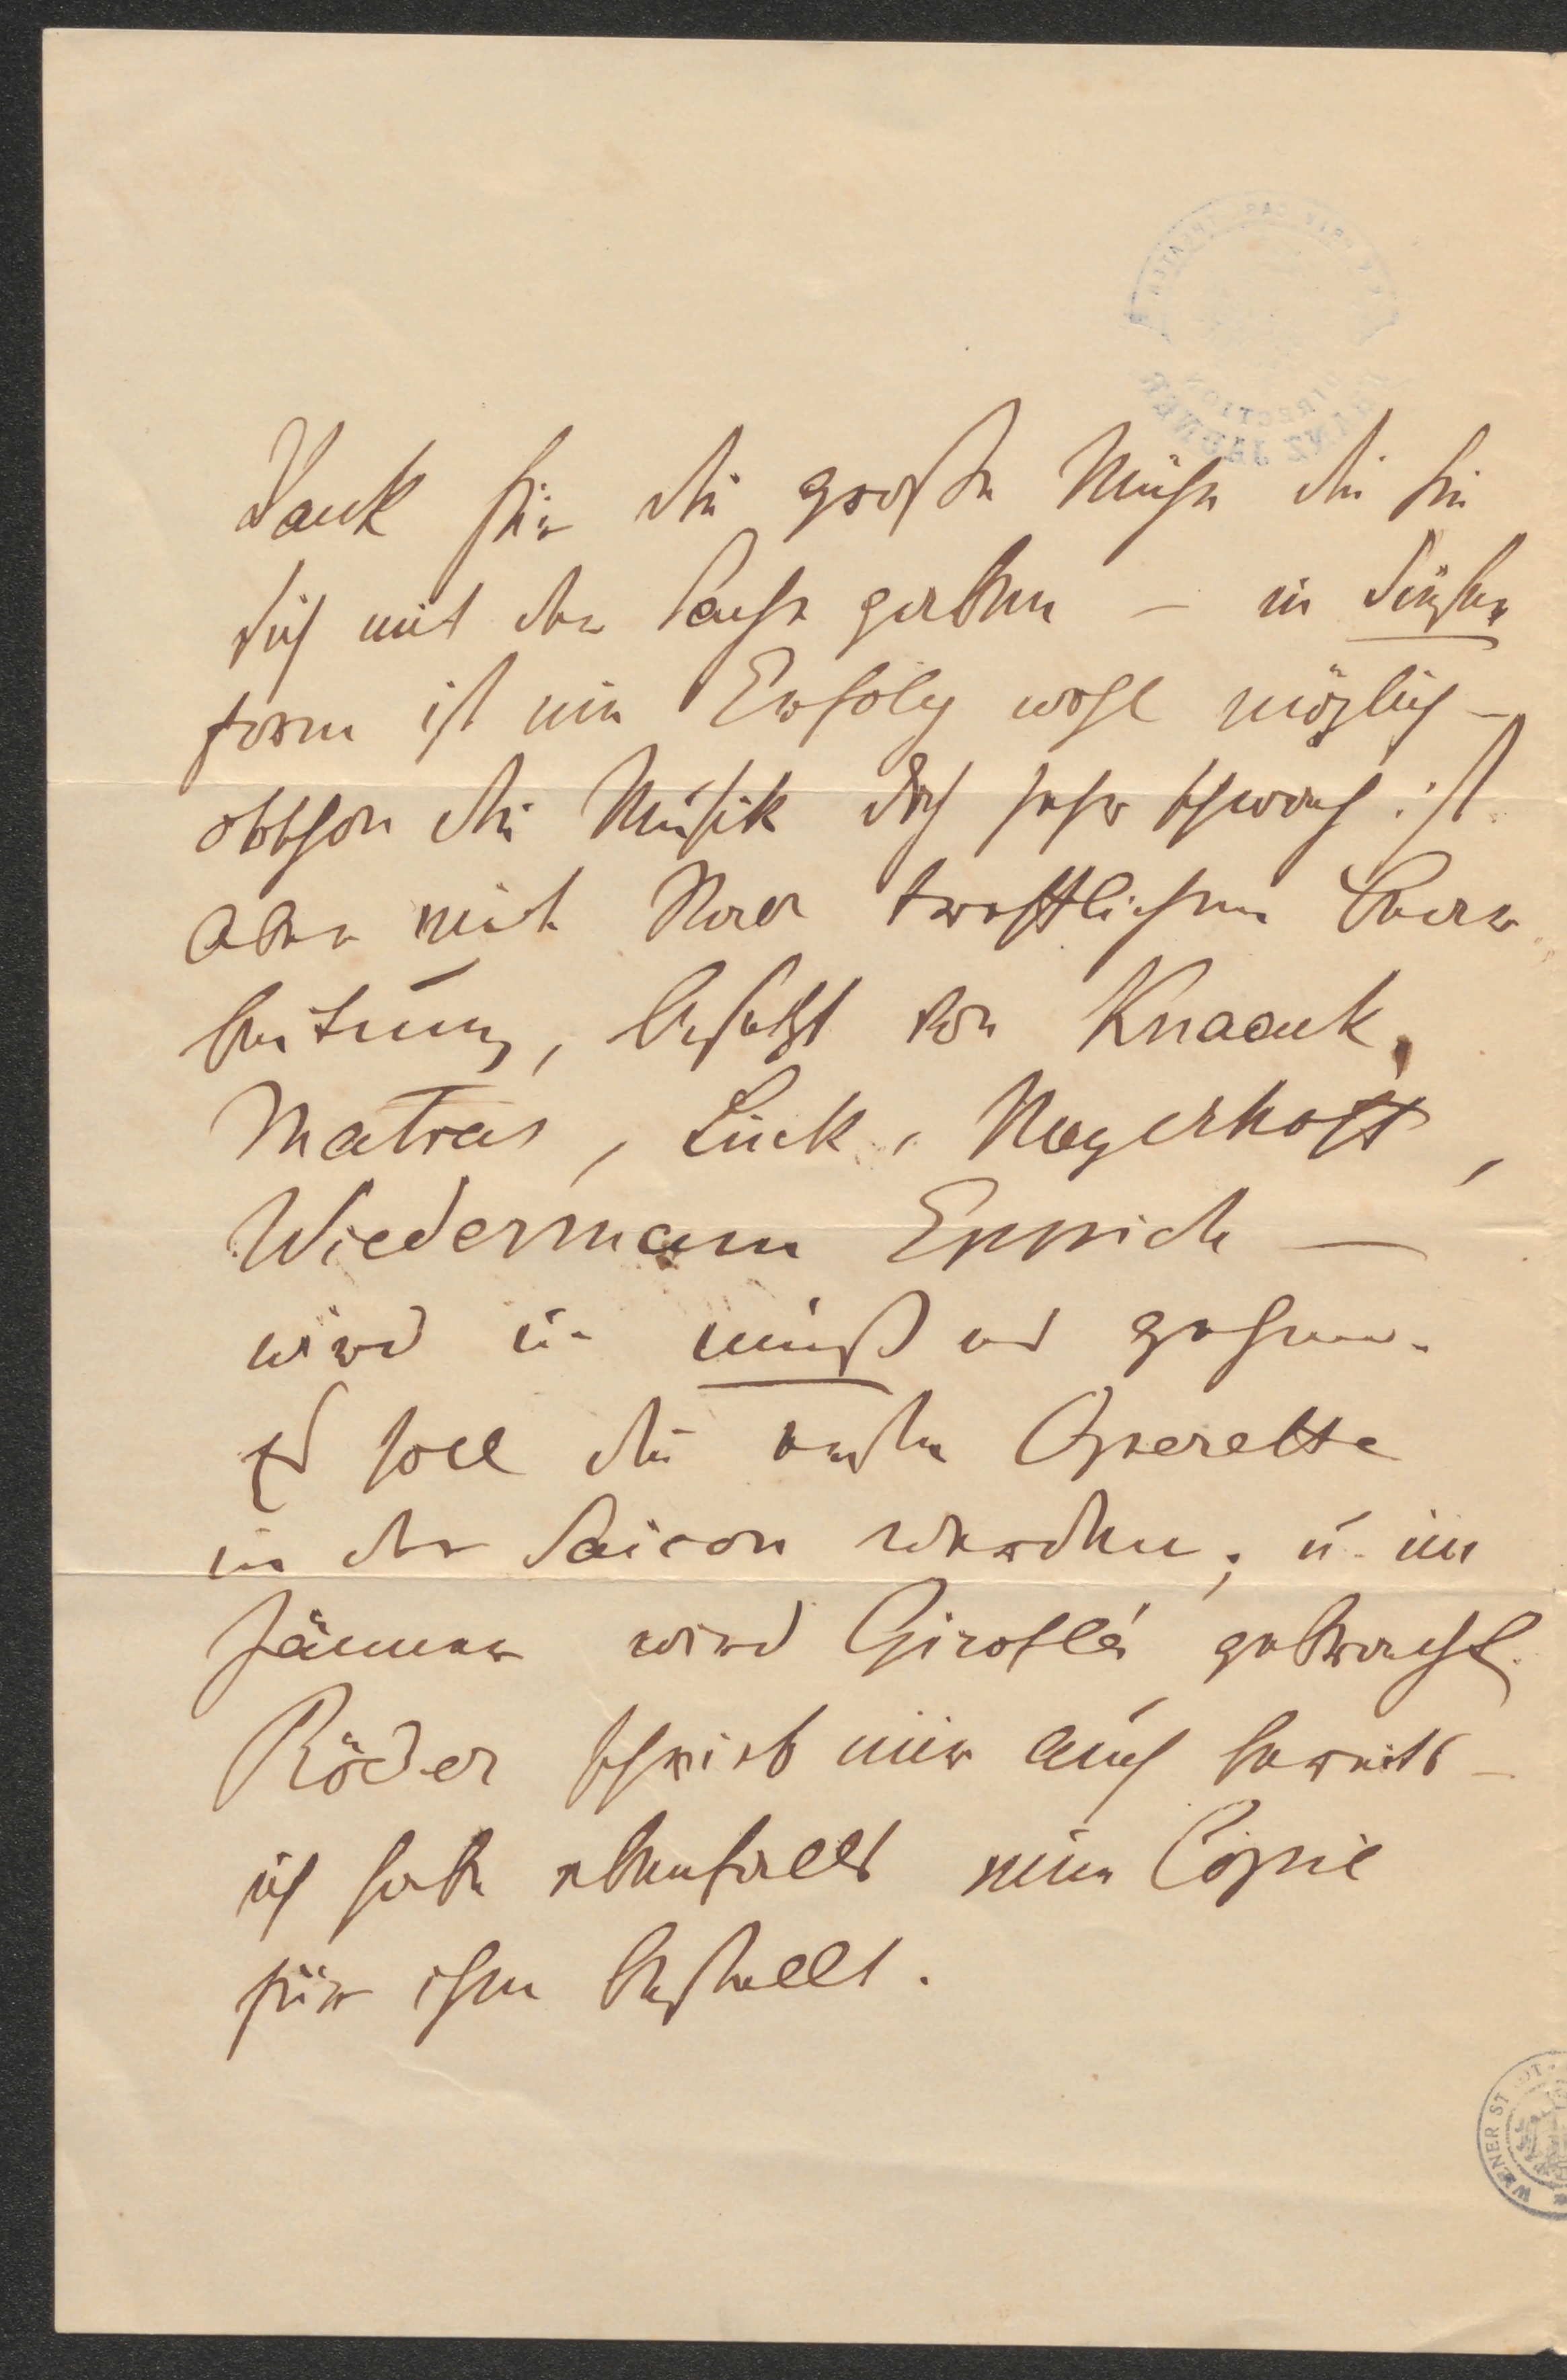 Dank für die große Mühe die Sie
sich mit der Sache geben – in dieser
form ist ein Erfolg wohl möglich –
obschon die Musik doch sehr schwach ist.
Aber mit Ihrer trefflichen Bear
beitung, besetzt von Knaack,
Matras, Link, Meyerhoff,
Wiedermann Eppich —
wird u. muß es gehen.
Es soll die erste Operette
in der Saison werden; u. im
Jänner wird Giroflé gebracht.
Röder schrieb mir auch bereits –
ich habe ebenfalls eine Copie
für ihn bestellt.
FRANZ JAUNER
DIRECTION
WIENER STADT